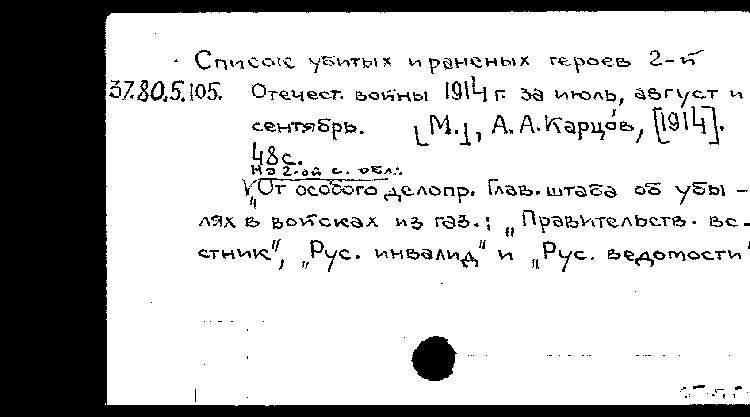 Список убитых и раненых героев 2-й
37.80.5.105. Отечест. войны 1914 г. за июль, август и
сентябрь. [М.], А. А. Карцов, [1914].
48 с.
На 2-ой с. обл.:
„От особого делопр. Глав. штаба об убы-
лях в войсках из газ.: „Правительств. ве-
стник", „Рус. инвалид" и „Рус. ведомости"